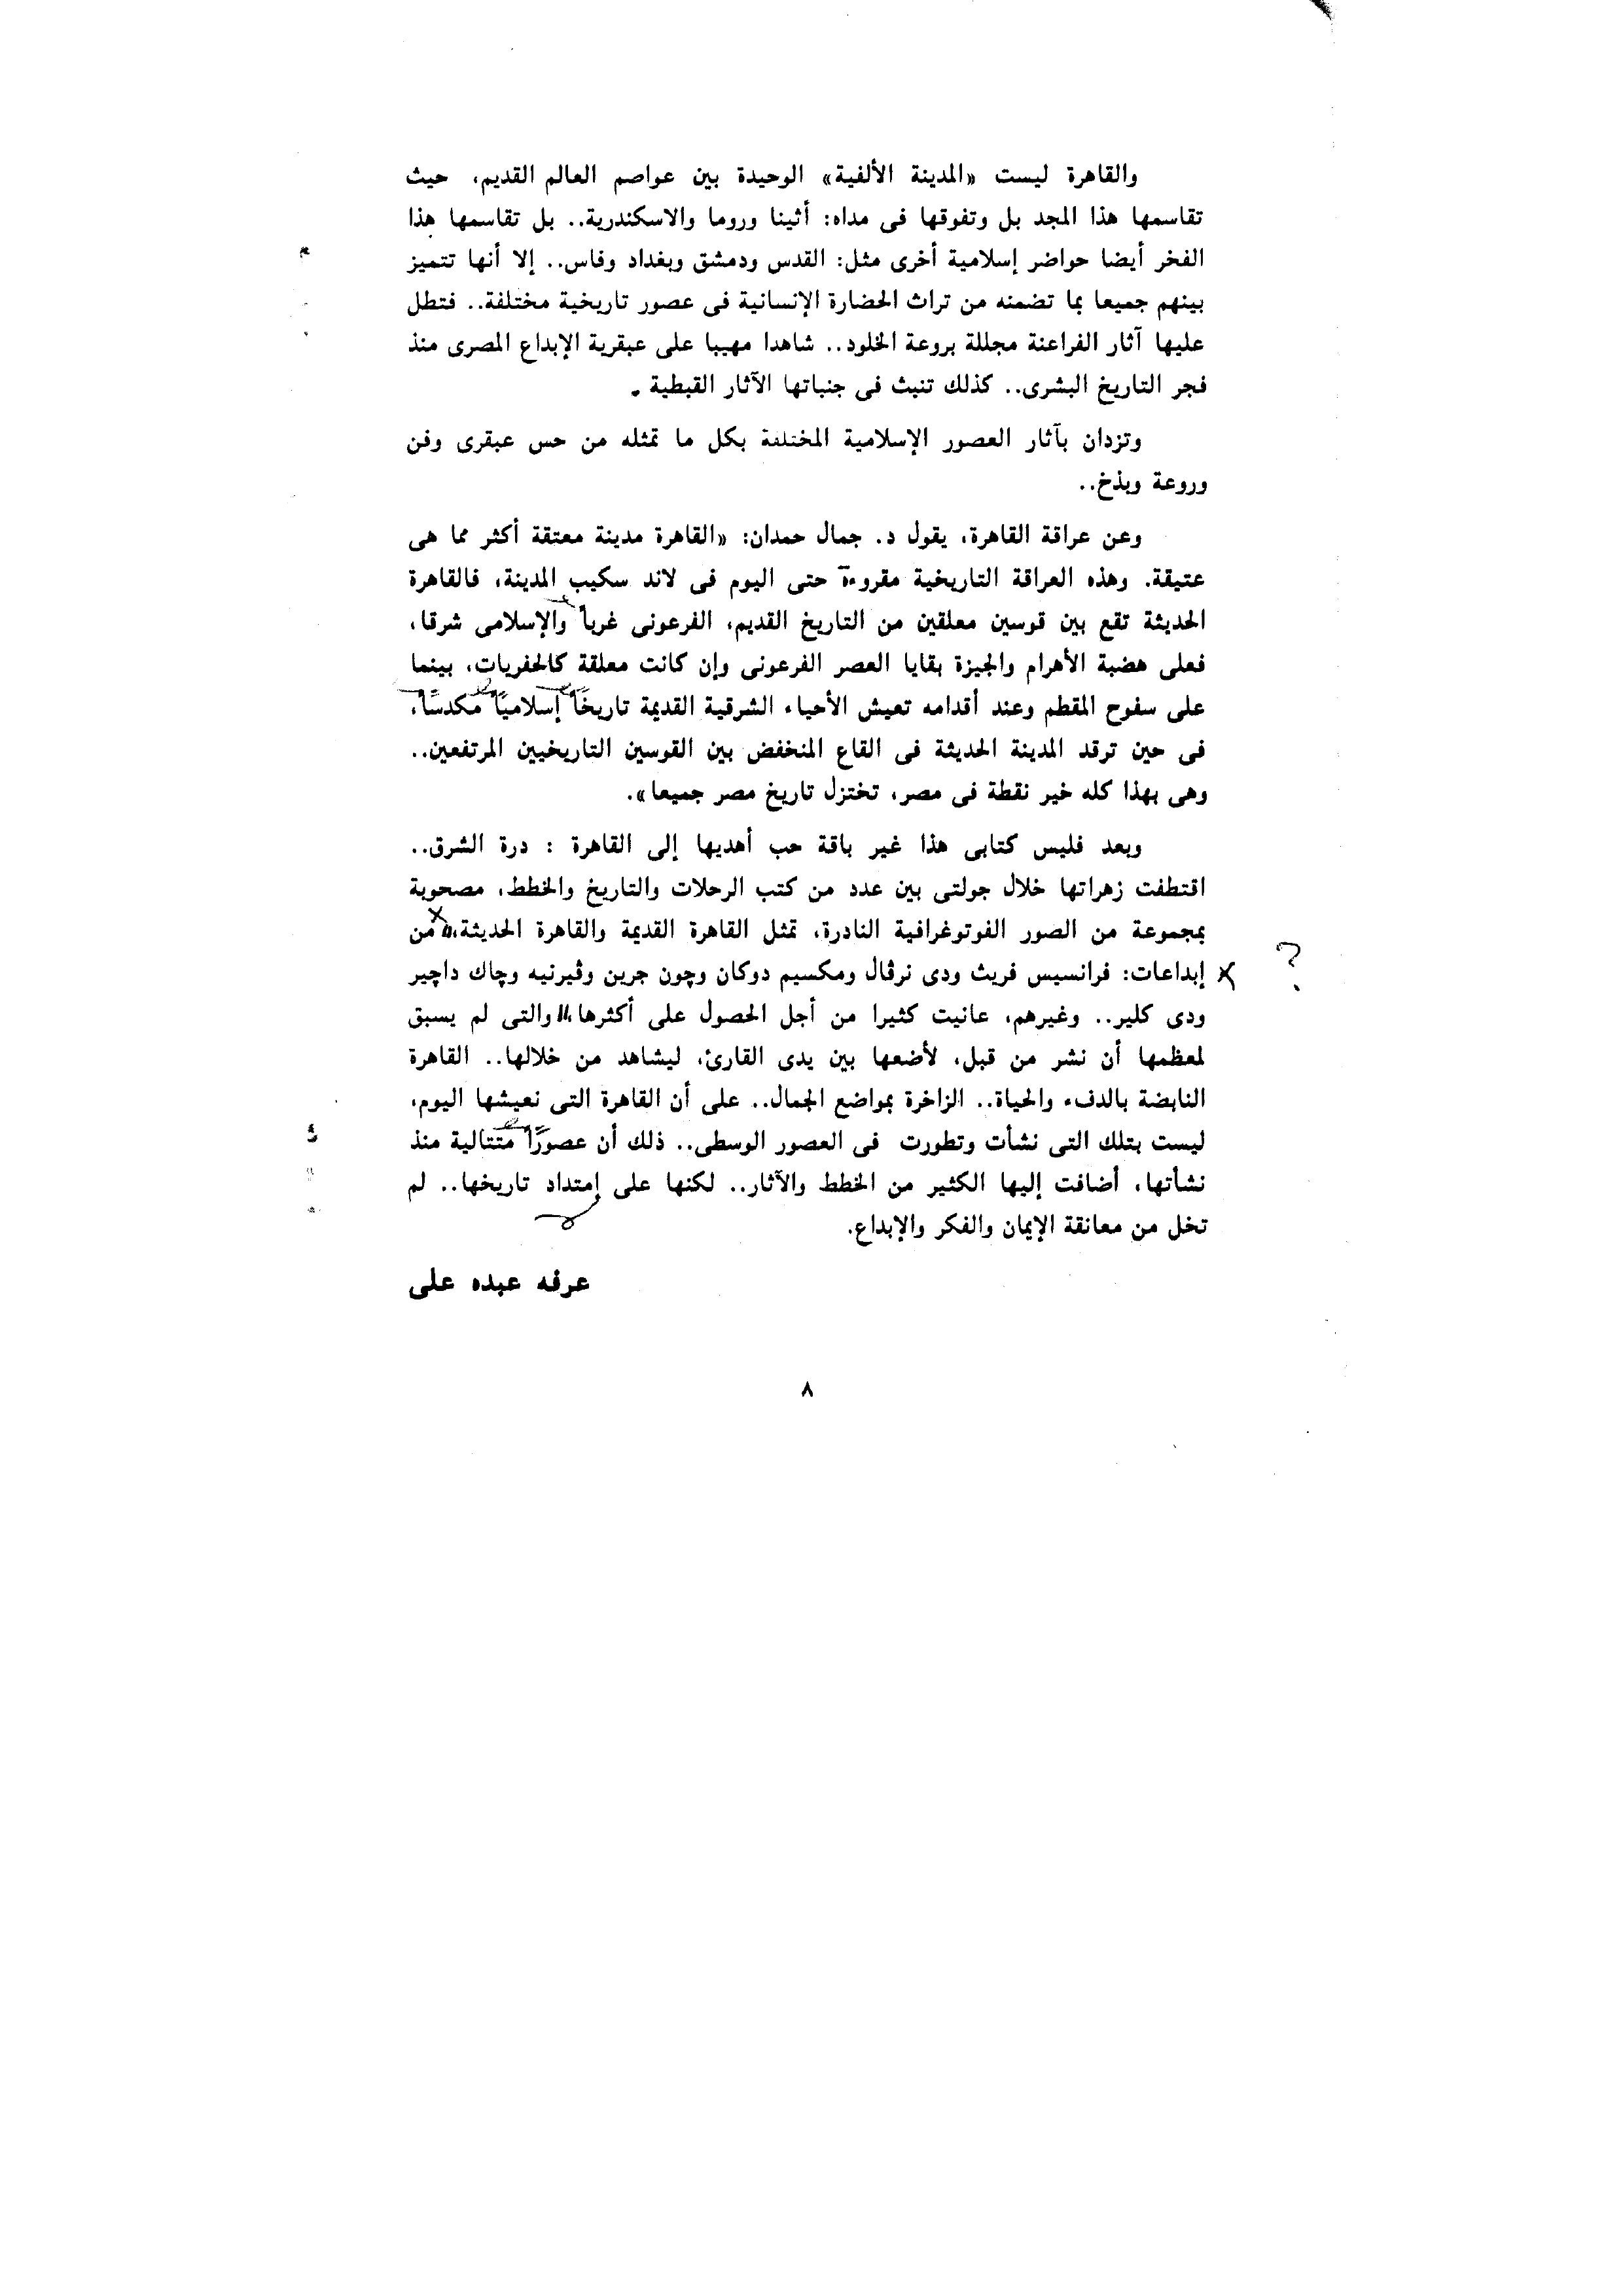 والقاهرة ليست «المدينة الألفية» الوحيدة بين عواصم العالم القديم، حيث
تقاسمها هذا المجد بل وتفوقها فى مداه: أثينا وروما والاسكندرية.. بل تقاسمها هذا
الفخر أيضا حواضر إسلامية أخرى مثل: القدس ودمشق وبغداد وفاس.. إلا أنها تتميز
بينهم جميعا بما تضمنه من تراث الحضارة الإنسانية فى عصور تاريخية مختلفة.. فتطل
عليها آثار الفراعنة مجللة بروعة الخلود.. شاهدا مهيبا على عبقرية الإبداع المصرى منذ
فجر التاريخ البشرى.. كذلك تنبث فى جنباتها الآثار القبطية .
وتزدان بآثار العصور الإسلامية المختلفة بكل ما تمثله من حس عبقرى وفن
وروعة وبذخ..
وعن عراقة القاهرة، يقول د. جمال حمدان: «القاهرة مدينة معتقة أكثر مما هى
عتيقة. وهذه العراقة التاريخية مقروءة حتى اليوم فى لاند سكيب المدينة، فالقاهرة
الحديثة تقع بين قوسين معلقين من التاريخ القديم، الفرعونى غرباً والإسلامى شرقا،
فعلى هضبة الأهرام والجيزة بقايا العصر الفرعونى وإن كانت معلقة كالحفريات، بينما
على سفوح المقطم وعند أقدامه تعيش الأحياء الشرقية القديمة تاريخًا إسلاميًا مكدسًا،
فى حين ترقد المدينة الحديثة فى القاع المنخفض بين القوسين التاريخيين المرتفعين..
وهى بهذا كله خير نقطة فى مصر، تختزل تاريخ مصر جميعا».
وبعد فليس كتابى هذا غير باقة حب أهديها إلى القاهرة : درة الشرق..
اقتطفت زهراتها خلال جولتى بين عدد من كتب الرحلات والتاريخ والخطط، مصحوبة
بمجموعة من الصور الفوتوغرافية النادرة، تمثل القاهرة القديمة والقاهرة الحديثة، من
إبداعات: فرانسيس فريث ودى نرڤال ومكسيم دوكان وچون جرين وڤيرنيه وچاك داچير
ودى كلير.. وغيرهم، عانيت كثيرا من أجل الحصول على أكثرها، والتى لم يسبق
لمعظمها أن نشر من قبل، لأضعها بين يدى القارئ، ليشاهد من خلالها.. القاهرة
النابضة بالدفء والحياة.. الزاخرة بمواضع الجمال.. على أن القاهرة التى نعيشها اليوم،
ليست بتلك التى نشأت وتطورت فى العصور الوسطى.. ذلك أن عصورًا متتالية منذ
نشأتها، أضافت إليها الكثير من الخطط والآثار.. لكنها على إمتداد تاريخها.. لم
تخل من معانقة الإيمان والفكر والإبداع.
عرفه عبده على
٨
؟